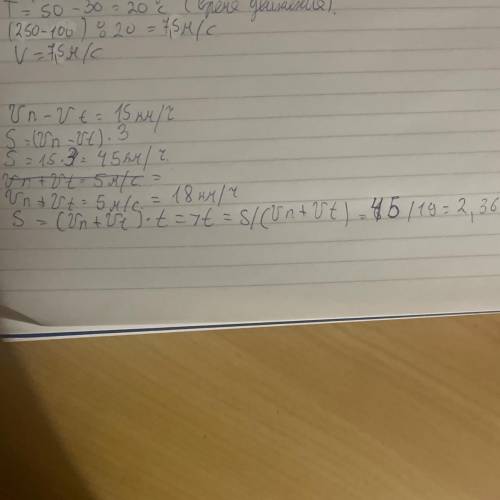 T = 50 - 30 = 20 c (время движения).
(250-100) : 20 = 7,5 м/с
V = 7,5 м/с
Vп - Vt = 15 км/ч
S = (Vп - Vt) · 3
S = 15 · 3 = 45 км/ч.
Vп + Vt = 5 м/с =
Vп + Vt = 5 м/с = 18 км/ч
S = (Vп + Vt) · t => t = S/(Vп + Vt) = 45/19 = 2,36